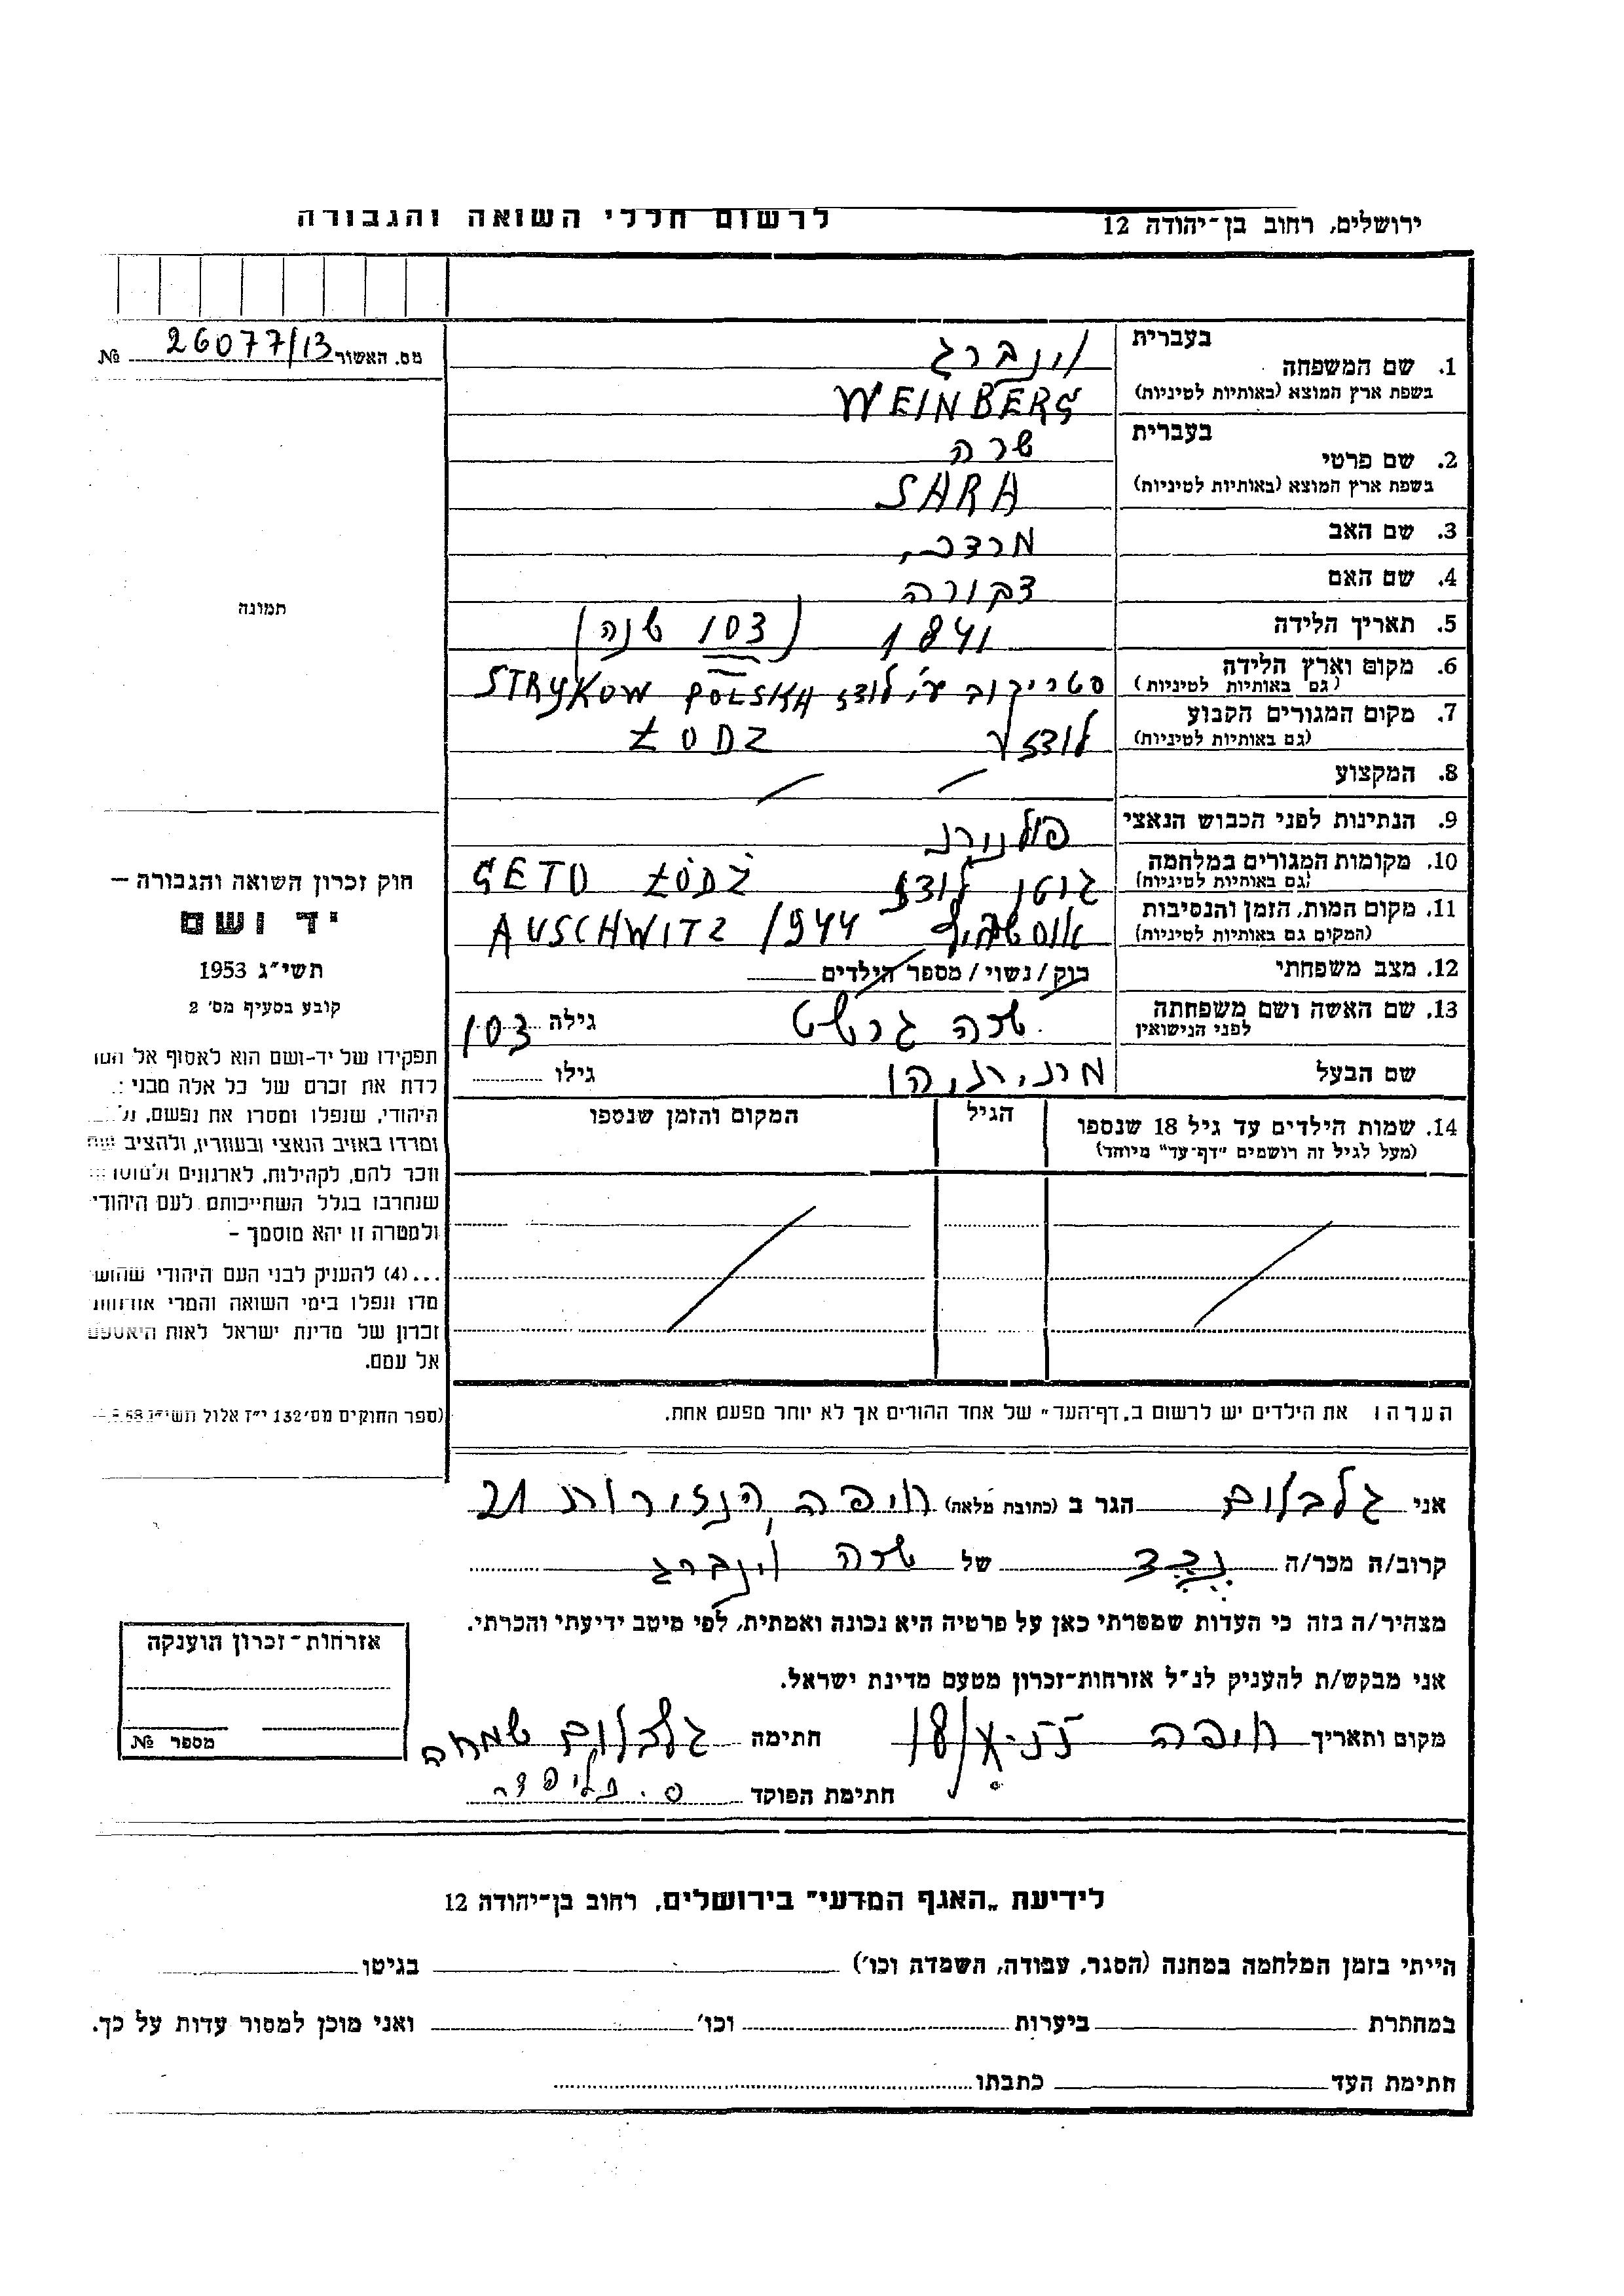 ירושלים, רחוב בן־יהודה 12
לרשום חללי השואה והגבורה
מס. האשור 26077/13 №
תמונה
חוק זכרון השואה והגבורה —
יד ושם
תשי״ג 1953
קובע בסעיף מס׳ 2
תפקידו של יד-ושם הוא לאסוף אל
לדת את זכרם של כל אלה מבני
היהודי, שנפלו ומסרו את נפשם,
ומרדו באויב הנאצי ובעוזריו, ולהציב
וזכר להם, לקהילות, לארגונים
שנחרבו בגלל השתייכותם לעם היהודי
ולמטרה זו יהא מוסמך –
...(4) להעניק לבני העם היהודי
מדו ונפלו בימי השואה והמרי
זכרון של מדינת ישראל לאות
אל עמם.
(ספר החוקים מס׳ 132 י״ז אלול
בעברית וינברג
1. שם המשפחה
בשפת ארץ המוצא (באותיות לטיניות) WEINBERG
בעברית שרה
2. שם פרטי
בשפת ארץ המוצא (באותיות לטיניות) SARA
3. שם האב מרדכי
4. שם האם
5. תאריך הלידה 1841 (103 שנה)
6. מקום וארץ הלידה סטריקוב ע״י לודז STRYKOW POLSKA
(גם באותיות לטיניות)
7. מקום המגורים הקבוע לודז ŁODZ
(גם באותיות לטיניות)
8. המקצוע
9. הנתינות לפני הכבוש הנאצי פולנית
10. מקומות המגורים במלחמה גיטו לודז GETO ŁÓDŹ
(גם באותיות לטיניות)
11. מקום המות, הזמן והנסיבות AUSCHWITZ 1944
(המקום גם באותיות לטיניות)
12. מצב משפחתי רוק/נשוי/מספר הילדים
13. שם האשה ושם משפחתה שרה גרשט גילה 103
לפני הנישואין
שם הבעל מתתיהו גילו
14. שמות הילדים עד גיל 18 שנספו הגיל המקום והזמן שנספו
(מעל לגיל זה רושמים "דף־עד" מיוחד)
הערה: את הילדים יש לרשום ב„דף־העד״ של אחד ההורים אך לא יותר מפעם אחת.
אני גלבלום הגר ב (כתובת מלאה) חיפה הנזירות 21
קרוב/ה מכר/ה נכד של שרה וינברג
מצהיר/ה בזה כי העדות שמסרתי כאן על פרטיה היא נכונה ואמתית, לפי מיטב ידיעתי והכרתי.
אני מבקש/ת להעניק לנ״ל אזרחות-זכרון מטעם מדינת ישראל.
מקום ותאריך חיפה חתימה גלבלום שמחה
חתימת הפוקד
אזרחות־זכרון הוענקה
מספר №
לידיעת „האגף המדעי״ בירושלים, רחוב בן־יהודה 12
הייתי בזמן המלחמה במחנה (הסגר, עבודה, השמדה וכו׳) בגיטו
במחתרת ביערות וכו׳ ואני מוכן למסור עדות על כך.
חתימת העד כתבתו